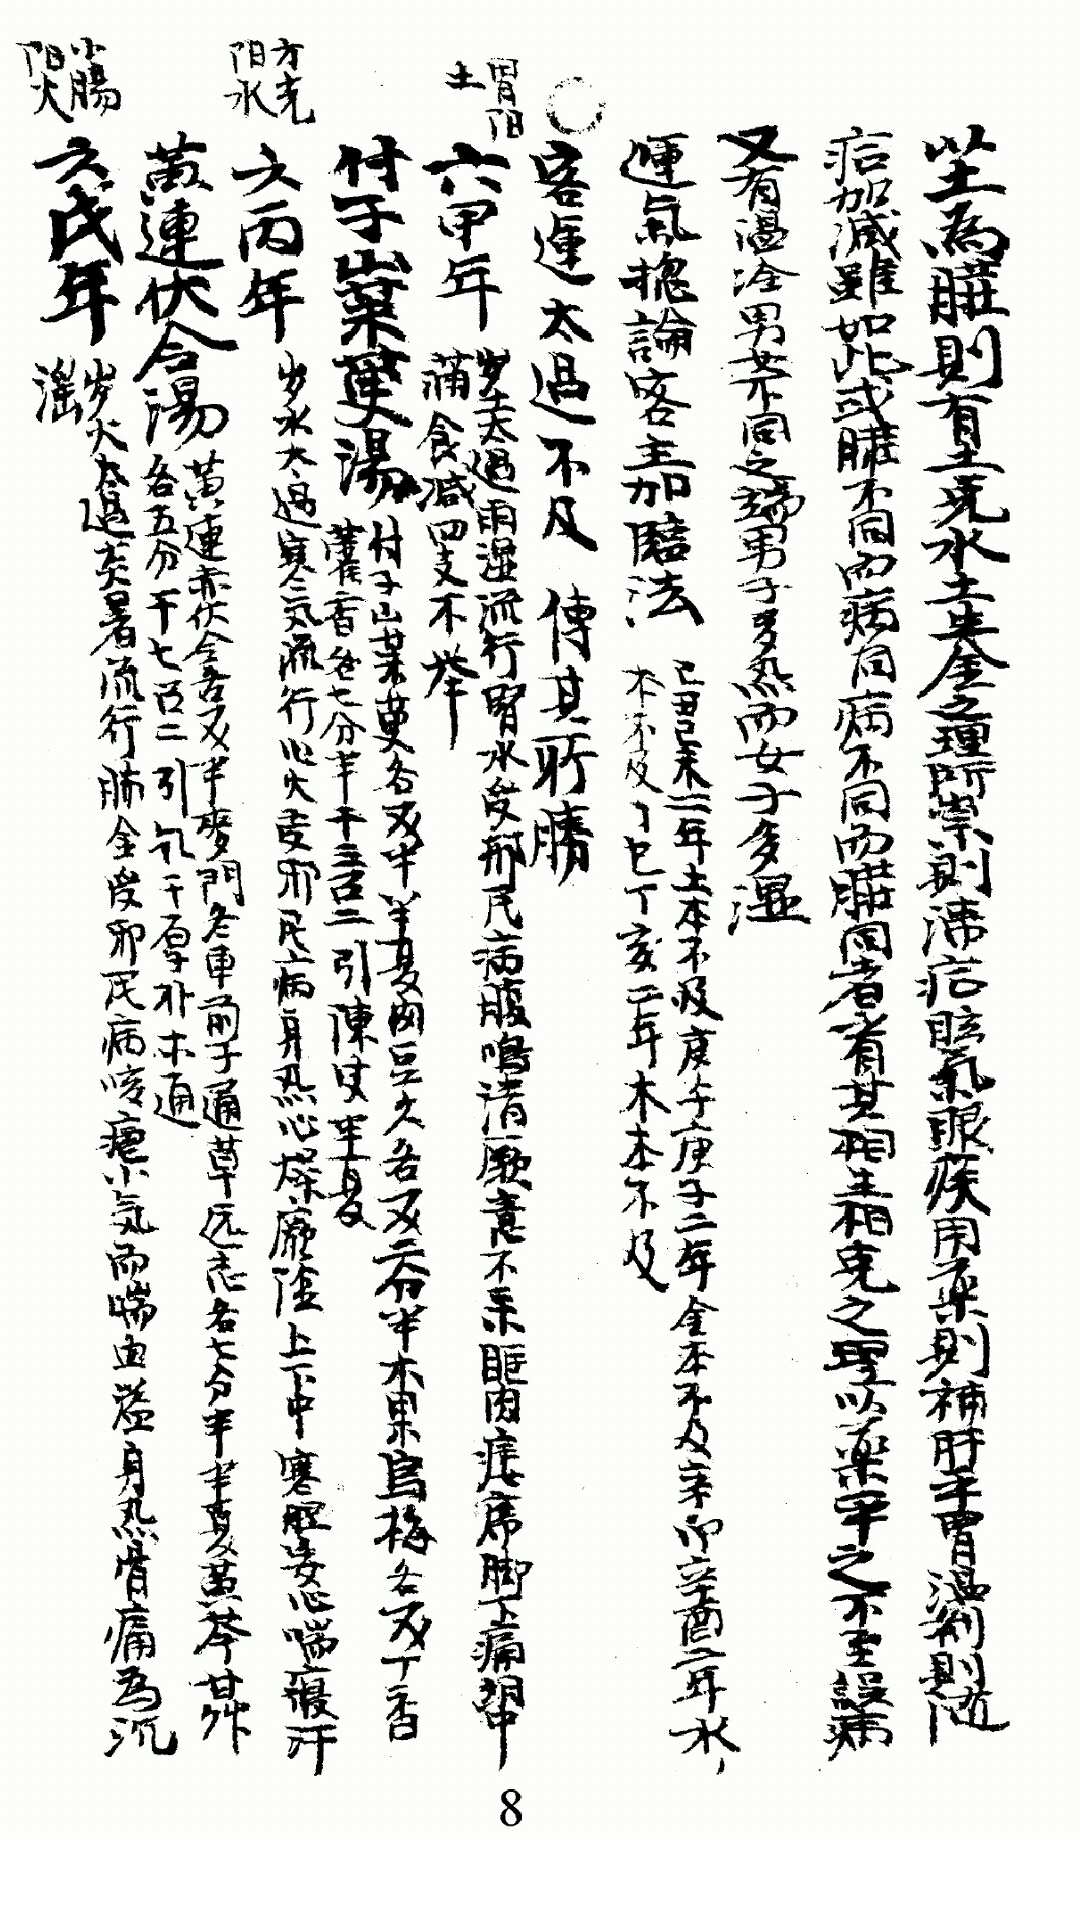 坐為脾則有土克水土生金之理所崇則沸症眩氣眼疾用藥則補肝平胃温剂則随
症加減雖如此或臟不同而病同病不同而臟同者必有其相生相克之理以藥平之不至誤病
又有温冷男女不同之端男子多热而女子多濕
運氣摠論客主加臨法
己丑己未二年土本不及庚子庚子二年金本不及辛卯辛酉二年水
本不及丁巳丁亥二年木本不及
客運太過不及 傳其所勝
胃阳
土
六甲年
岁土太過雨湿流行腎水受邢民病腹鳴清厥意不乐眶肉痿席脚下痛
满食减四支不举
付子山茱萸湯
付子山茱萸各又半半夏肉豆久各又二分半木果烏梅各又丁香
藿香各七分半干三召二引陳皮半夏
方光
阳水
六丙年
岁水太過寒氣流行心火受邪民病身热心燥厥陰上下中寒腥妄心喘寢汗
黃連伏令湯
黃連赤伏令各又半麥門冬車前子通草远志各七分半半夏黄芩甘草
各五分干七召二引瓜干厚朴木通
小腸
阳火
六戊年
岁火太過炎暑流行肺金受邪民病咳瘧小気而喘血溢身热骨痛為沉
滛
8